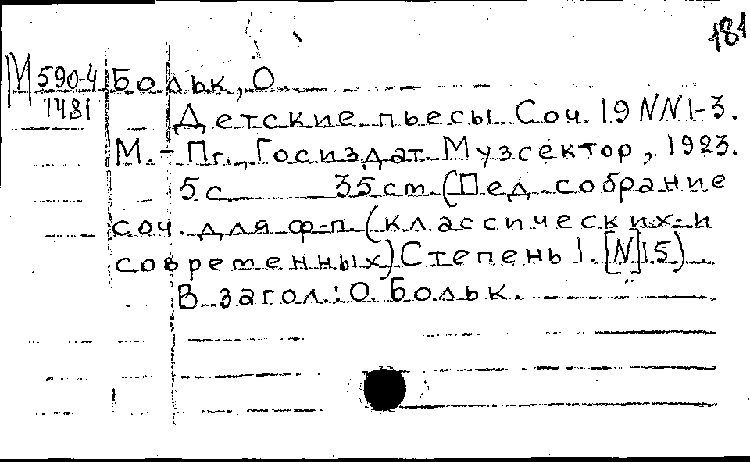 181
М 590-4 Больк, О.
1481
Детские пьесы Соч. 19 NN1-3.
М.-Пг., Госиздат Музсектор, 1923.
5с 35cm. (Пед. собрание
соч. для ф-п (классических и
современных) Степень 1. [N]15)
В загол.: О. Больк.